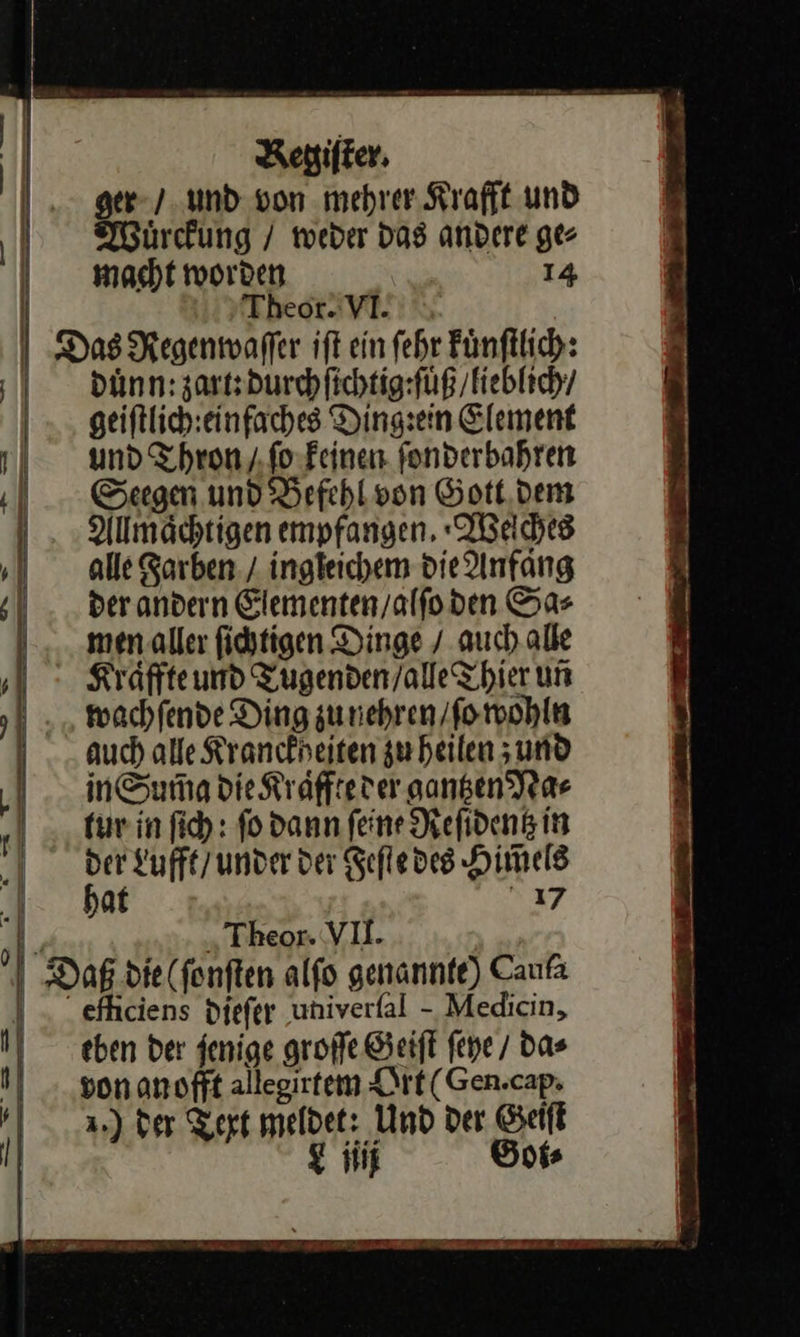 Regiſter.
ger / und von mehrer Krafft und
Wuͤrckung / weder das andere ge⸗
macht worden 14
Theor. VI.
Das Regenwaſſer iſt ein ſehr kuͤnſtlich:
duͤnn: zart: durchſichtig: ſuͤß / lieblich /
geiſtlich: einfaches Ding: ein Element
und Thron / ſo keinen ſonderbahren
Seegen und Befehl von Gott dem
Allmaͤchtigen empfangen. Welches
alle Farben / ingleichem die Anfaͤng
der andern Elementen / alſo den Sa⸗
men aller ſichtigen Dinge / auch alle
Kraͤffte und Tugenden / alle Thier uñ
wachſende Ding zu nehren / ſo wohln
auch alle Kranckheiten zu heilen; und
in Sum̃a die Kraͤffte der gantzen Na⸗
tur in ſich: ſo dann ſeine Reſidentz in
der Lufft / under der Feſte des Him̃els
hat 17
Theor. VII.
Daß die (ſonſten alſo genannte) Cauſa
efficiens dieſer univerſal - Medicin,
eben der jenige groſſe Geiſt ſeye / da⸗
von an offt allegirtem Ort (Gen. cap.
1.) der Text meldet: Und der Geiſt
L iiij Got⸗